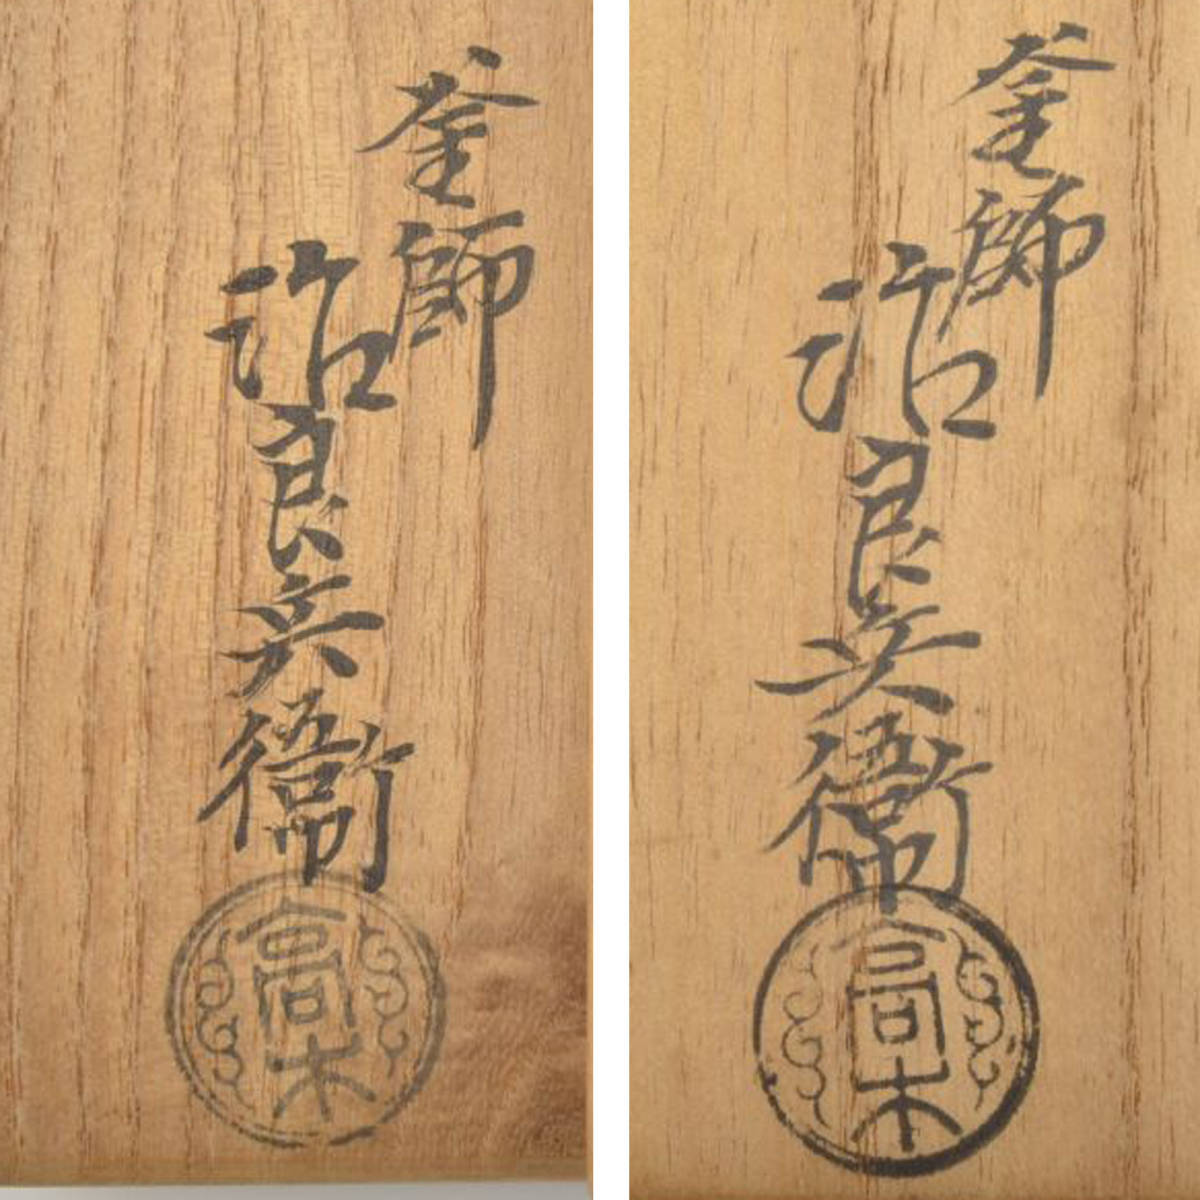 釜師
治良兵衛
高木
釜師
治良兵衛
高木